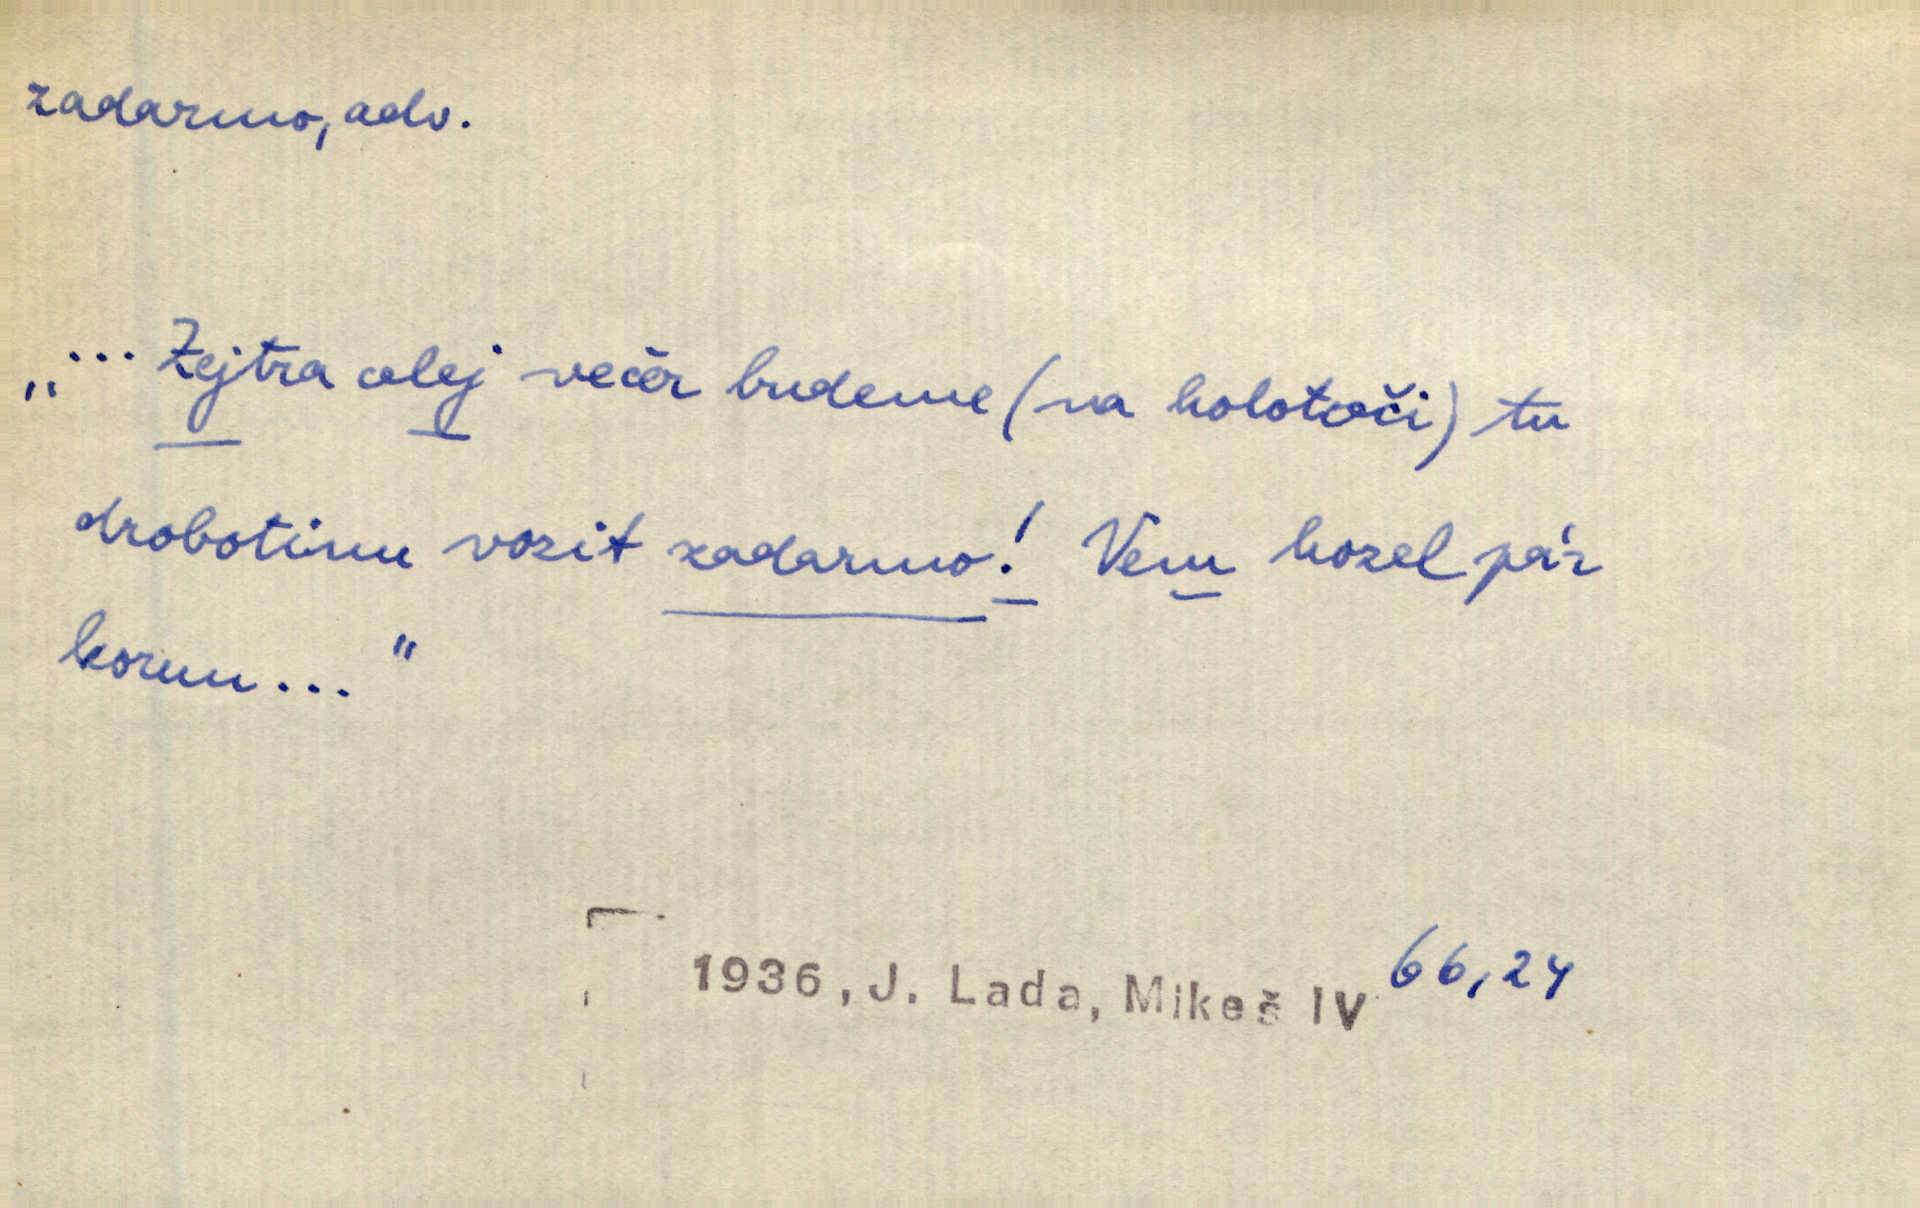 zadarmo, adv.
„... Zejtra celej večer budeme (na kolotoči) tu
drobotinu vozit zadarmo! Vem kozel pár
korun..."
1936, J. Lada, Mikeš IV 66,24